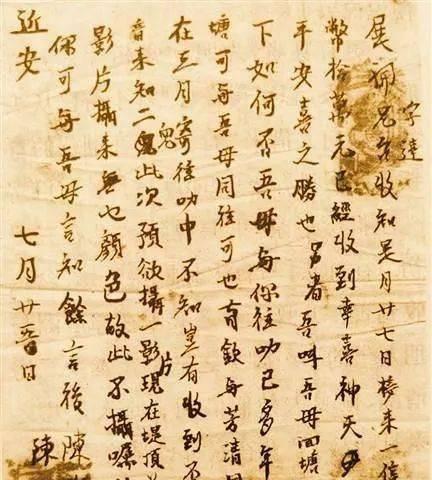 字達
展嬭兄台收知是月廿七日接来一信
幣拾萬元已經收到幸喜神天
平安喜之勝也另者吾叫吾母回塘
下如何否吾母每你往叻已多年
塘可每吾母同往可也育欽每芳清
在三月寄往叻中不知豈有收到否
音来知二鬼此次預欲攝一影片現在堤頂
影片攝来無也顏色故此不攝囑
你可每吾母言知餘言後陳
近安 七月廿 日 陳